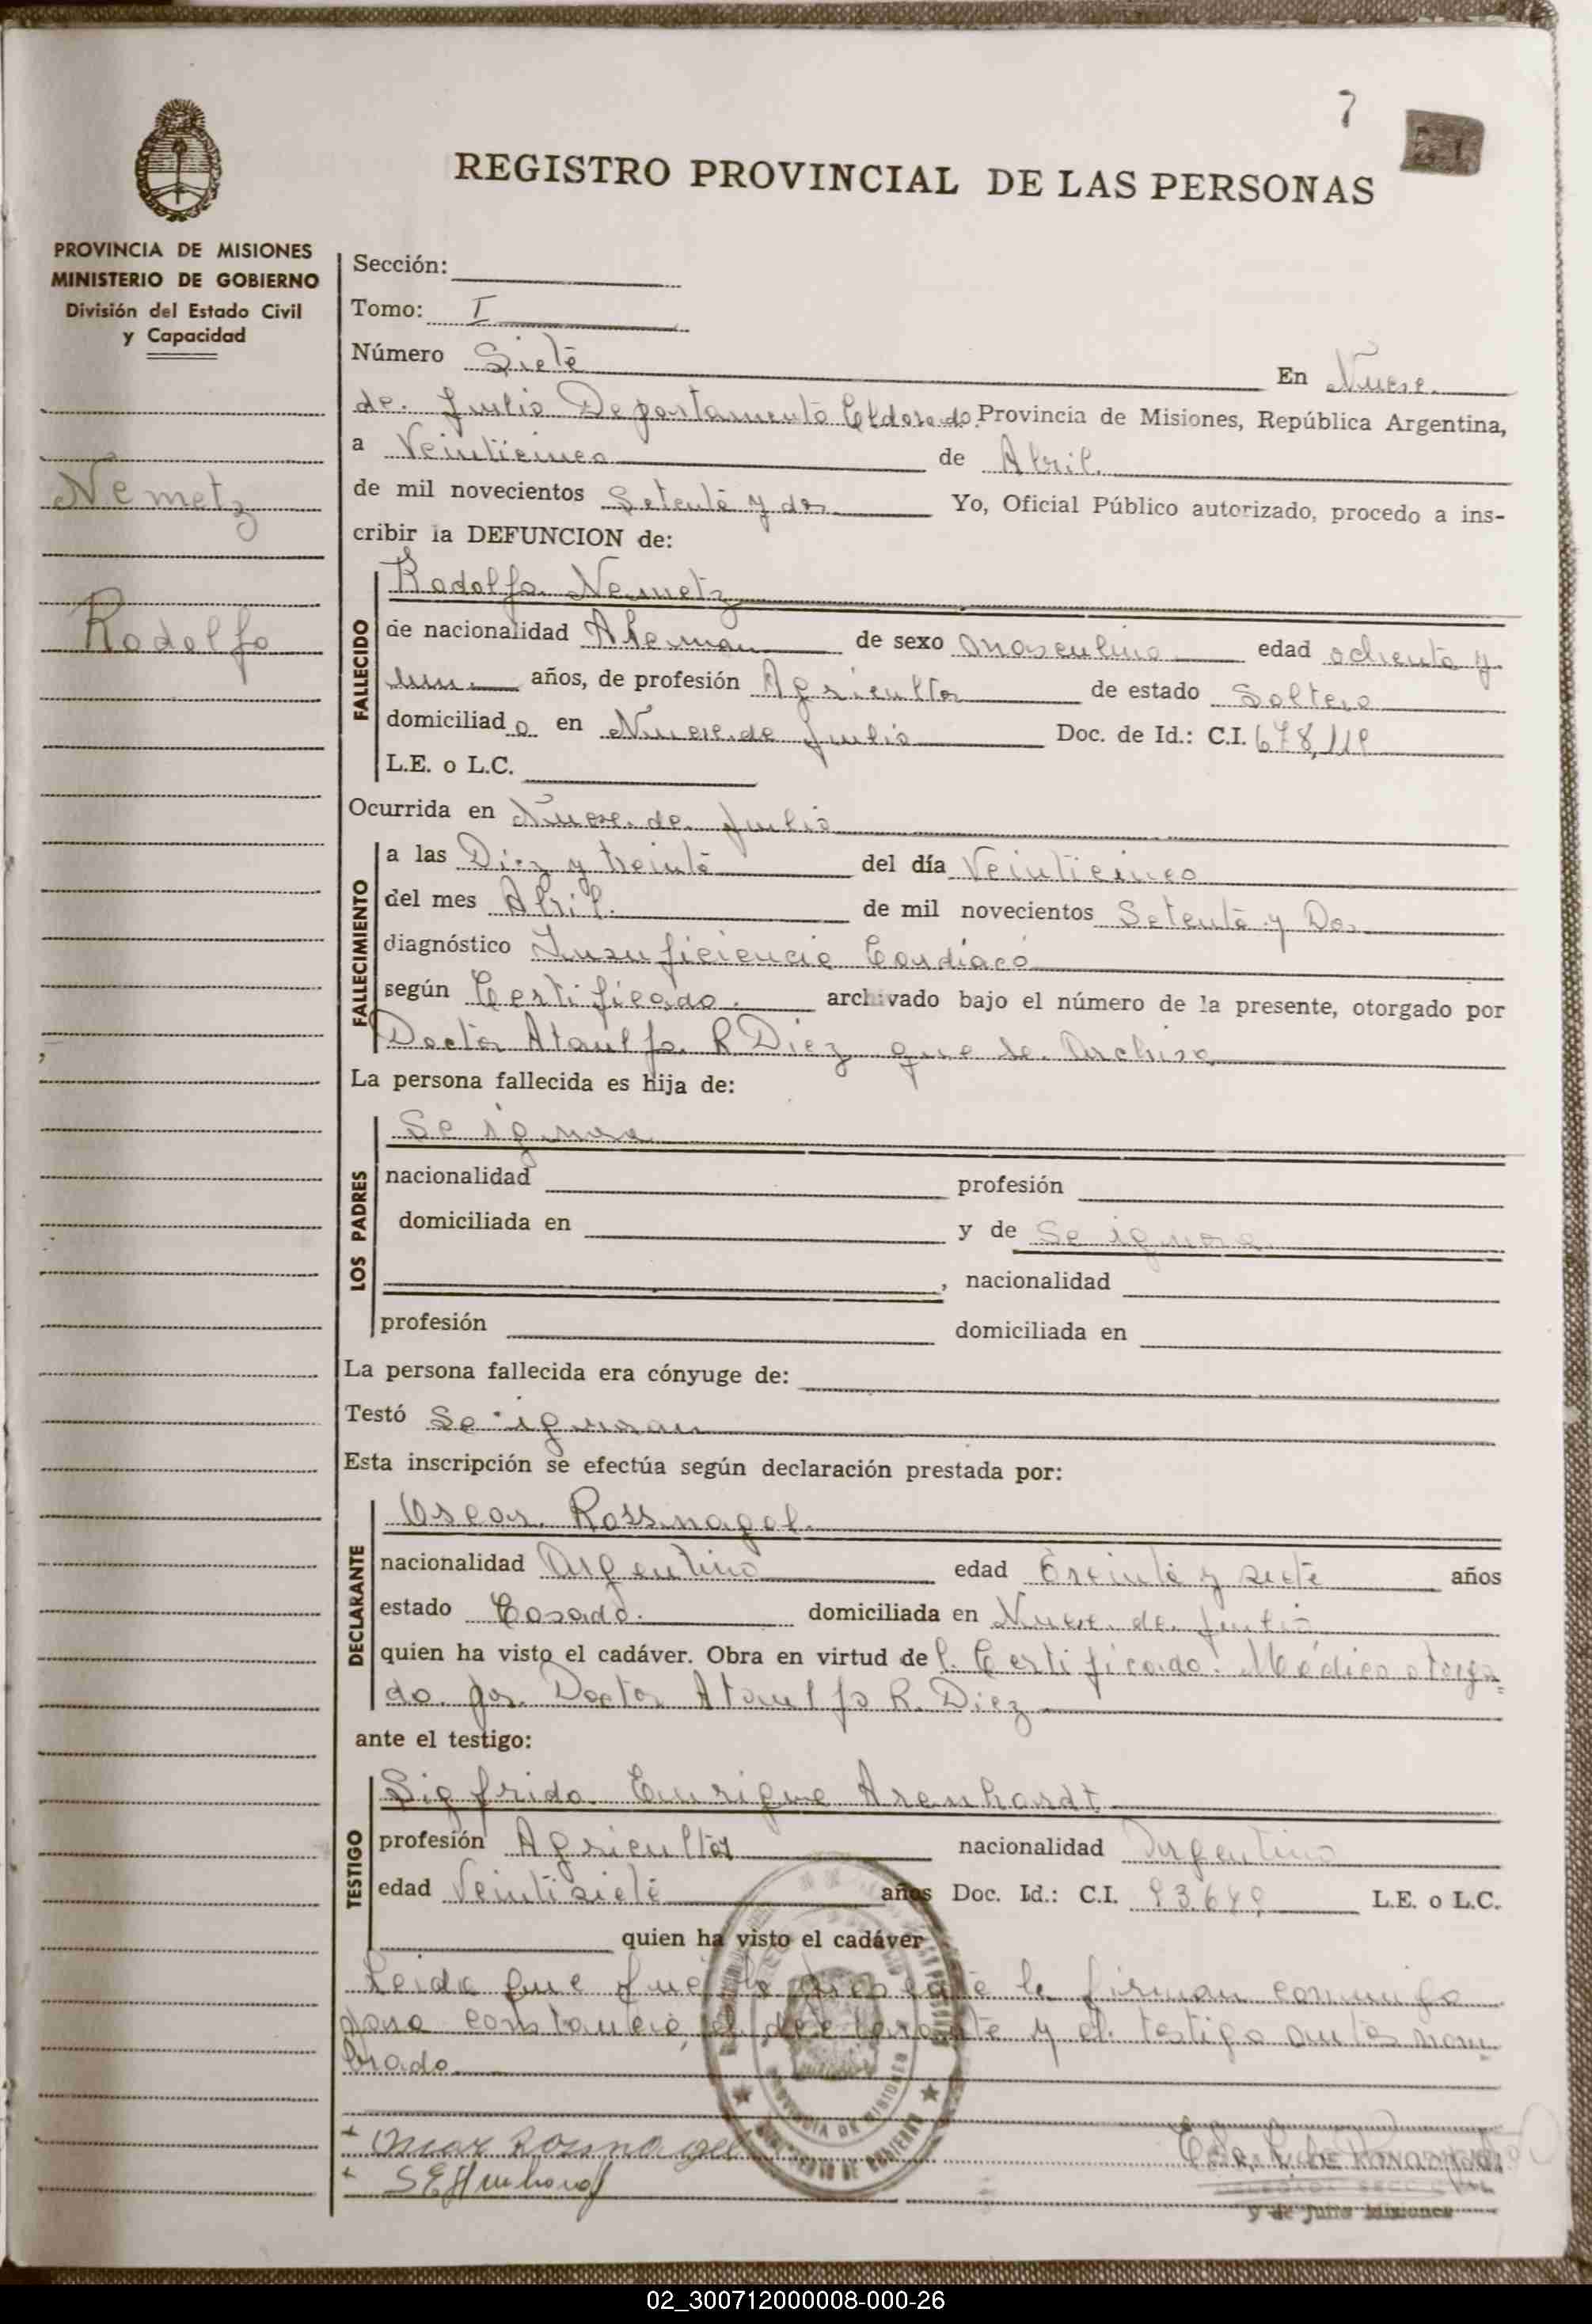 7
REGISTRO PROVINCIAL DE LAS PERSONAS
PROVINCIA DE MISIONES
MINISTERIO DE GOBIERNO
División del Estado Civil
y Capacidad
Nemetz
Rodolfo
Sección:
Tomo: I
Número Siete En Nueve
de Julio Departamento Eldorado Provincia de Misiones, República Argentina,
a Veinticinco de Abril
de mil novecientos Setenta y dos Yo, Oficial Público autorizado, procedo a ins-
cribir la DEFUNCION de:
FALLECIDO
Rodolfo Nemetz
de nacionalidad Aleman de sexo Masculino edad ochenta y
un años, de profesión Agricultor de estado Soltero
domiciliado en Nueve de Julio Doc. de Id.: C.I.
L.E. o L.C.
Ocurrida en Nueve de Julio
FALLECIMIENTO
a las Diez y treinta del día Veinticinco
del mes Abril de mil novecientos Setenta y Dos
diagnóstico Insuficiencia Cardiaca
según Certificado archivado bajo el número de la presente, otorgado por
Doctor Ataulfo R Diez que se Archiva
La persona fallecida es hija de:
LOS PADRES
Se ignora
nacionalidad profesión
domiciliada en y de Se ignora
, nacionalidad
profesión domiciliada en
La persona fallecida era cónyuge de:
Testó Se ignoran
Esta inscripción se efectúa según declaración prestada por:
DECLARANTE
Oscar Rossnagel
nacionalidad Argentino edad treinta y siete años
estado Casado domiciliada en Nueve de Julio
quien ha visto el cadáver. Obra en virtud del Certificado Médico otorga-
do por Doctor Ataulfo R. Diez
ante el testigo:
TESTIGO
Sigfrido Enrique Arenhardt
profesión Agricultor nacionalidad Argentino
edad Veintisiete años Doc. Id.: C.I. L.E. o L.C.
quien ha visto el cadáver
Leida que fue la presente la firman conmigo
para constancia, el declarante y el testigo antes nom-
brado
PROVINCIA DE MISIONES
MINISTERIO DE GOBIERNO
Oscar Rossnagel
9 de Julio Misiones
02_300712000008-000-26